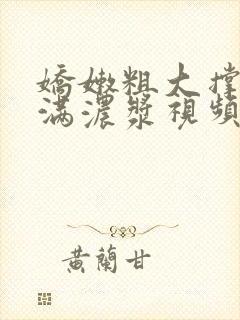 嬌嫩粗大撐
滿濃漿視頻
黃蘭甘